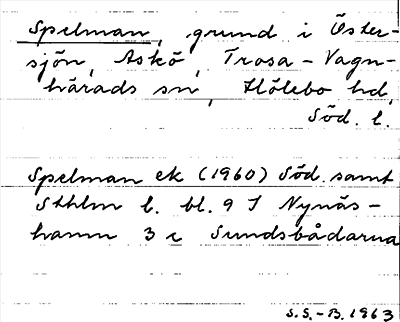 Spelman, grund i Öster-
sjön, Askö, Trosa-Vagn-
härads sn, Hölebo hd,
Söd. l.
Spelman ek (1960) Söd. samt
Sthlm l. bl. 9 I Nynäs-
hamn 3 c Sundsbådarna
S.S.-B. 1963